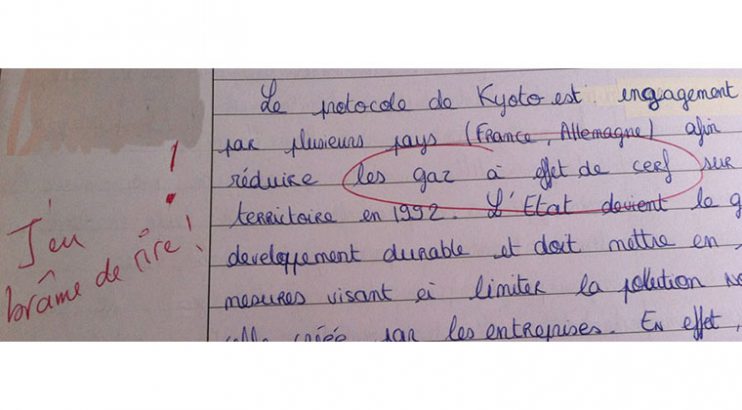 Le potocole de Kyoto est engagement
par plusieurs pays (France, Allemagne) afin
réduire les gaz à effet de cerf sur
territoire en 1992. L'Etat devient le g
developpement durable et doit mettre en
mesures visant ei limiter la pollution no
par les entreprises. En effet,
!
J'en
brâme de rire !